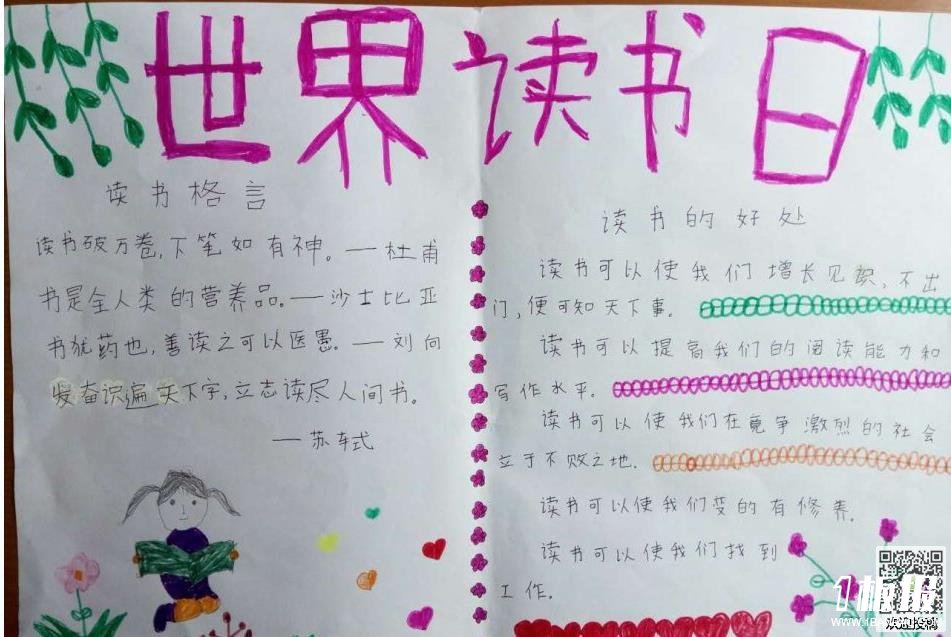 世界读书日
读书格言
读书破万卷,下笔如有神。——杜甫
书是全人类的营养品。——沙士比亚
书犹药也,善读之可以医愚。——刘向
发奋识遍天下字,立志读尽人间书。
——苏轼
读书的好处
读书可以使我们增长见识,不出
门,便可知天下事。
读书可以提高我们的阅读能力和
写作水平。
读书可以使我们在竞争激烈的社会
立于不败之地.
读书可以使我们变的有修养.
读书可以使我们找到
工作.